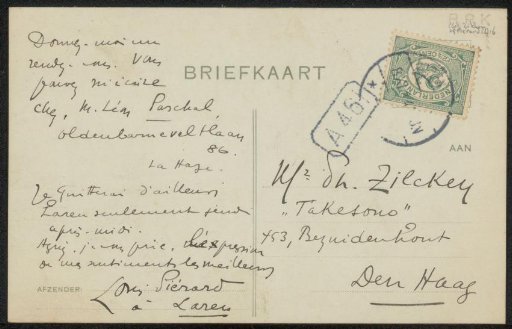 BRIEFKAART
Donnez-moi un
rendez-vous. Vous
pouvez m'écrire
chez M. Léon Paschal,
Oldenbarneveltlaan
86.
La Haye.
Je quitterai d'ailleurs
Laren seulement jeudi
après-midi.
Agréez, je vous prie, l'expression
de mes sentiments les meilleurs
AFZENDER:
Louis Piérard
à Laren
A 46
NEDERLAND
AAN
Mr. Ph. Zilcken
„Takesono"
453, Bezuidenhout
Den Haag